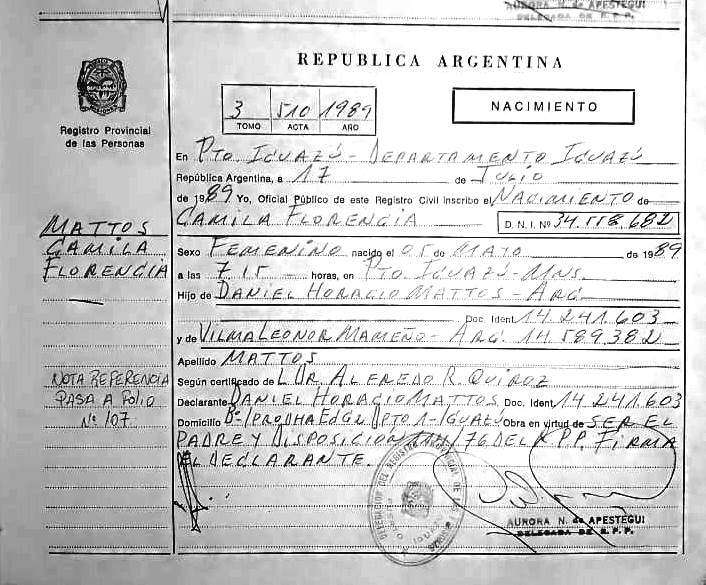 AURORA N. de APESTEGUI
DELEGADA DE R.P.P.
REPUBLICA ARGENTINA
3 510 1989
TOMO ACTA AÑO
NACIMIENTO
Registro Provincial
de las Personas
En PTO. IGUAZÚ - DEPARTAMENTO IGUAZÚ
República Argentina, a 17 de JULIO
de 1989 Yo, Oficial Público de este Registro Civil inscribo el NACIMIENTO de
CAMILA FLORENCIA D. N. I. Nº 34.558.682
MATTOS
CAMILA
FLORENCIA
Sexo FEMENINO nacido el 05 de MAYO de 1989
a las 7 15 horas, en PTO. IGUAZÚ - MNS.
Hijo de DANIEL HORACIO MATTOS - ARG.
Doc. Ident. 14.241.603
y de VILMA LEONOR MAMEÑO - ARG. 14.589.382
Apellido MATTOS
NOTA REFERENCIA
PASA A FOLIO
Nº 107
Según certificado de L DR. ALFREDO R. QUIROZ
Declarante DANIEL HORACIO MATTOS. Doc. Ident. 14.241.603
Domicilio Bº IPRODHA EDG2 DPTO 1 - IGUAZÚ Obra en virtud de SER EL
PADRE Y DISPOSICIÓN /76 DEL R.P.P. FIRMA
EL DECLARANTE.
AURORA N. de APESTEGUI
DELEGADA DE R.P.P.